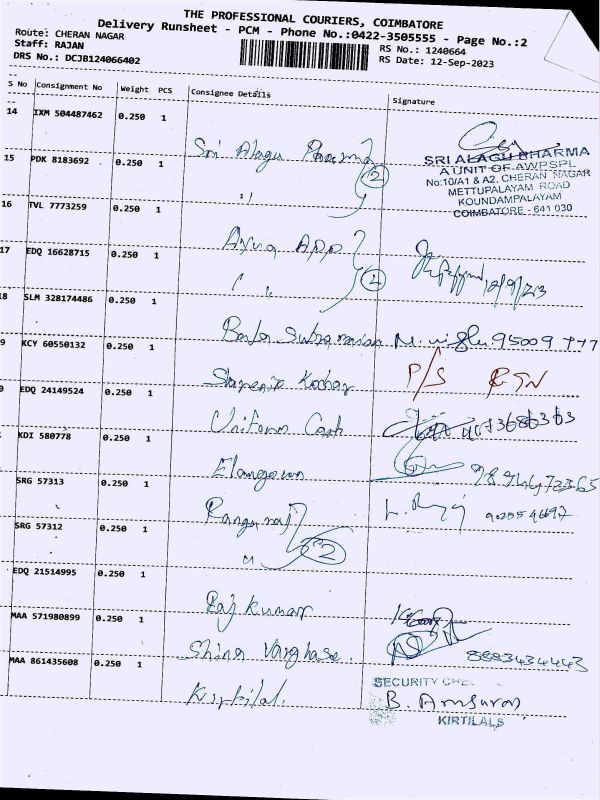 THE PROFESSIONAL COURIERS, COIMBATORE
Delivery Runsheet - PCM - Phone No.:0422-3505555 - Page No.:2
Route: CHERAN NAGAR
RS No.: 1240664
Staff: RAJAN
RS Date: 12-Sep-2023
DRS No.: DCJB124066402
S No Consignment No Weight PCS Consignee Details Signature
14 IXM 504487462 0.250 1 Sri Alagu Pharma
SRI ALAGU BHARMA
A UNIT OF AWPSPL
No:10/A1 & A2, CHERAN NAGAR
METTUPALAYAM ROAD
KOUNDAMPALAYAM
COIMBATORE - 641 030
15 PDK 8183692 0.250 1 " 2
16 TVL 7773259 0.250 1
17 EDQ 16628715 0.250 1 " 12/9/23
8 SLM 328174486 0.250 1 95009 777
9 KCY 60550132 0.250 1 Kochar P/S RTN
0 EDQ 24149524 0.250 1 Uniform
KDI 580778 0.250 1 Elangovan
SRG 57313 0.250 1 Rangaraj
SRG 57312 0.250 1 " 2
EDQ 21514995 0.250 1 Raj Kumar
MAA 571980899 0.250 1 Shina Varghase. 8883434443
MAA 861435608 0.250 1 Kirtilal.
SECURITY
B.
KIRTILALS